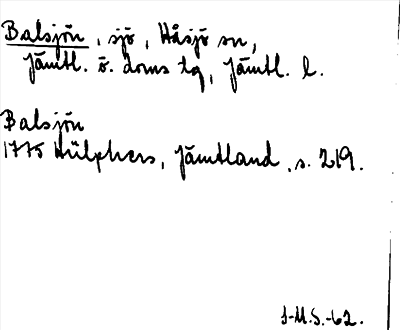 Balsjön, sjö, Håsjö sn,
Jämtl. ö. doms tg, Jämtl. l.
Balsjön
1775 Hülphers, Jämtland, s. 219.
J-M.S.-62.